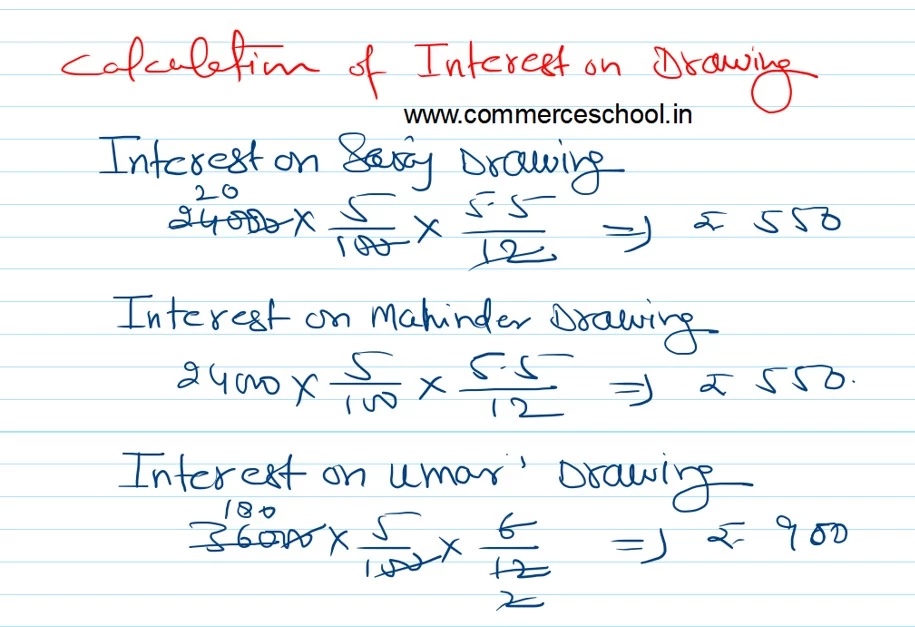 Calculation of Interest on Drawing
www.commerceschool.in
Interest on Drawing
20
24000 × 5/100 × 5.5/12 => ₹ 550
Interest on Mahinder Drawing
24000 × 5/100 × 5.5/12 => ₹ 550.
Interest on Umar' Drawing
180
36000 × 5/100 × 6/12 => ₹ 900
2